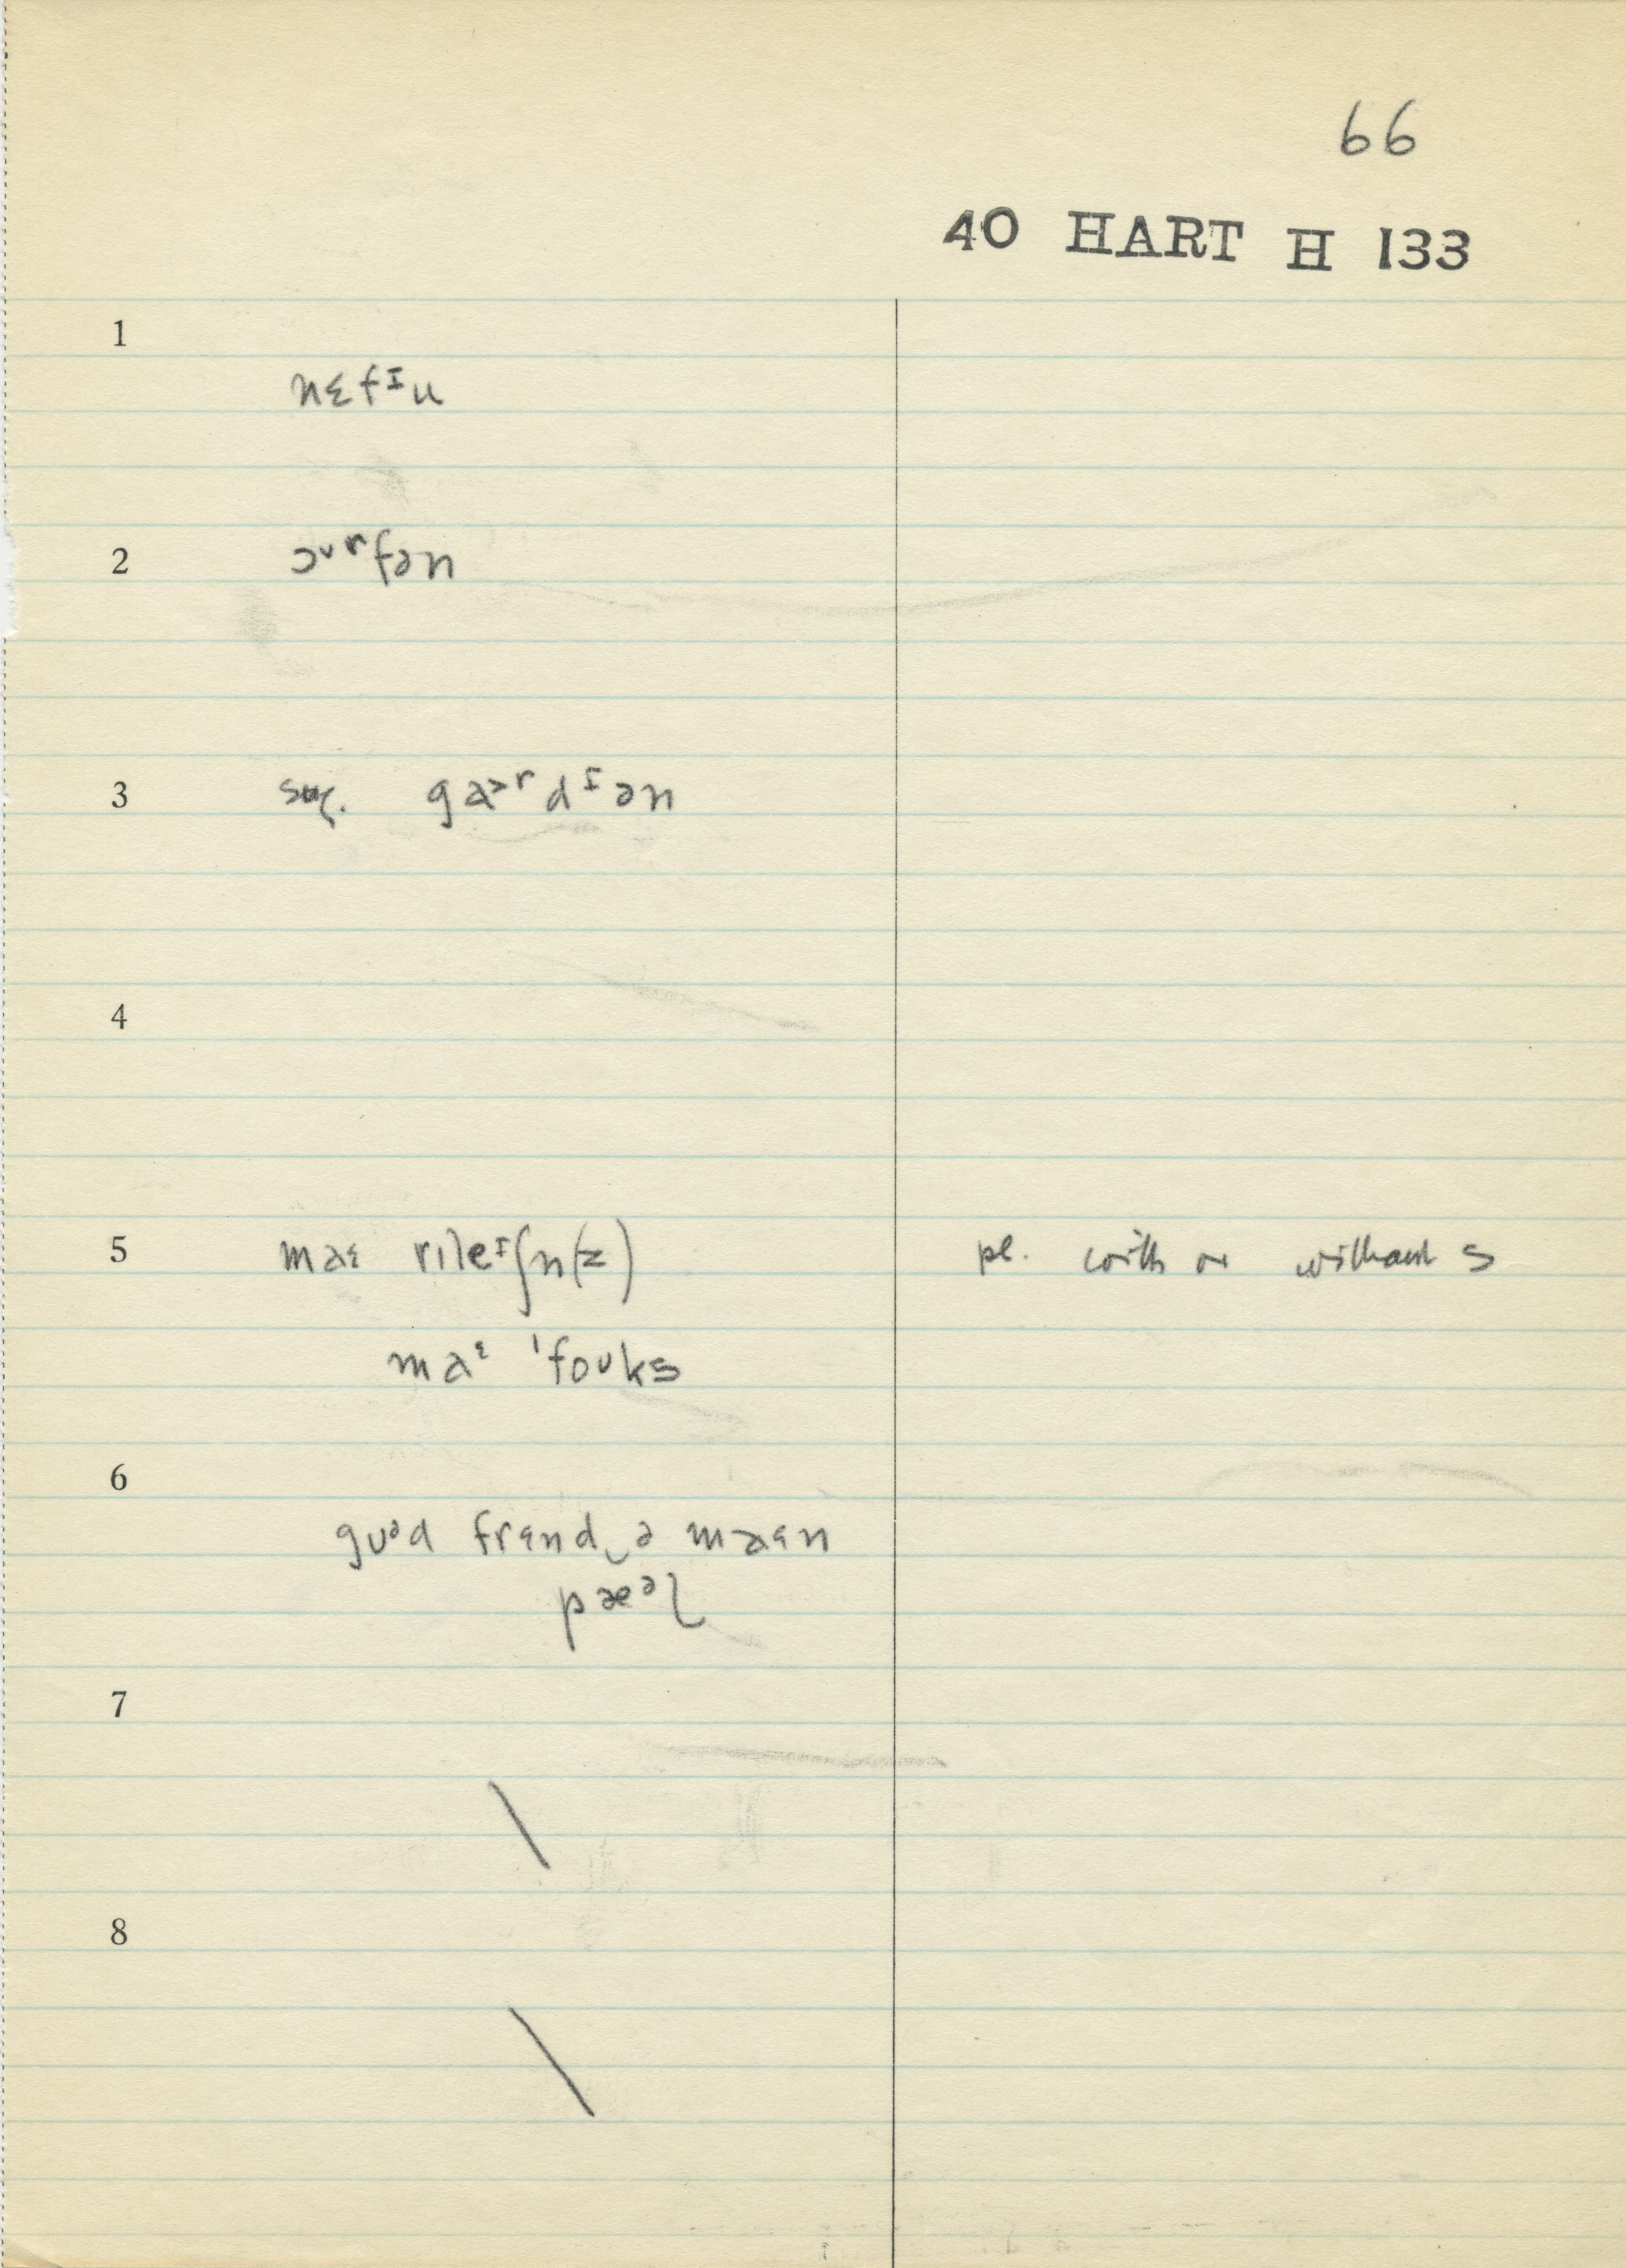 66
40 HART H 133
1
nɛfᴵu
2
ɔᶷʳfən
3
sug. gɑ˃ʳdᴵən
4
5
maɛ rɪleᴵʃn(z) pl. with or without s
maᵋ 'foʊks
6
gʊᵊd frɛnd‿ə maɛn
pæᵊl
7
\
8
\